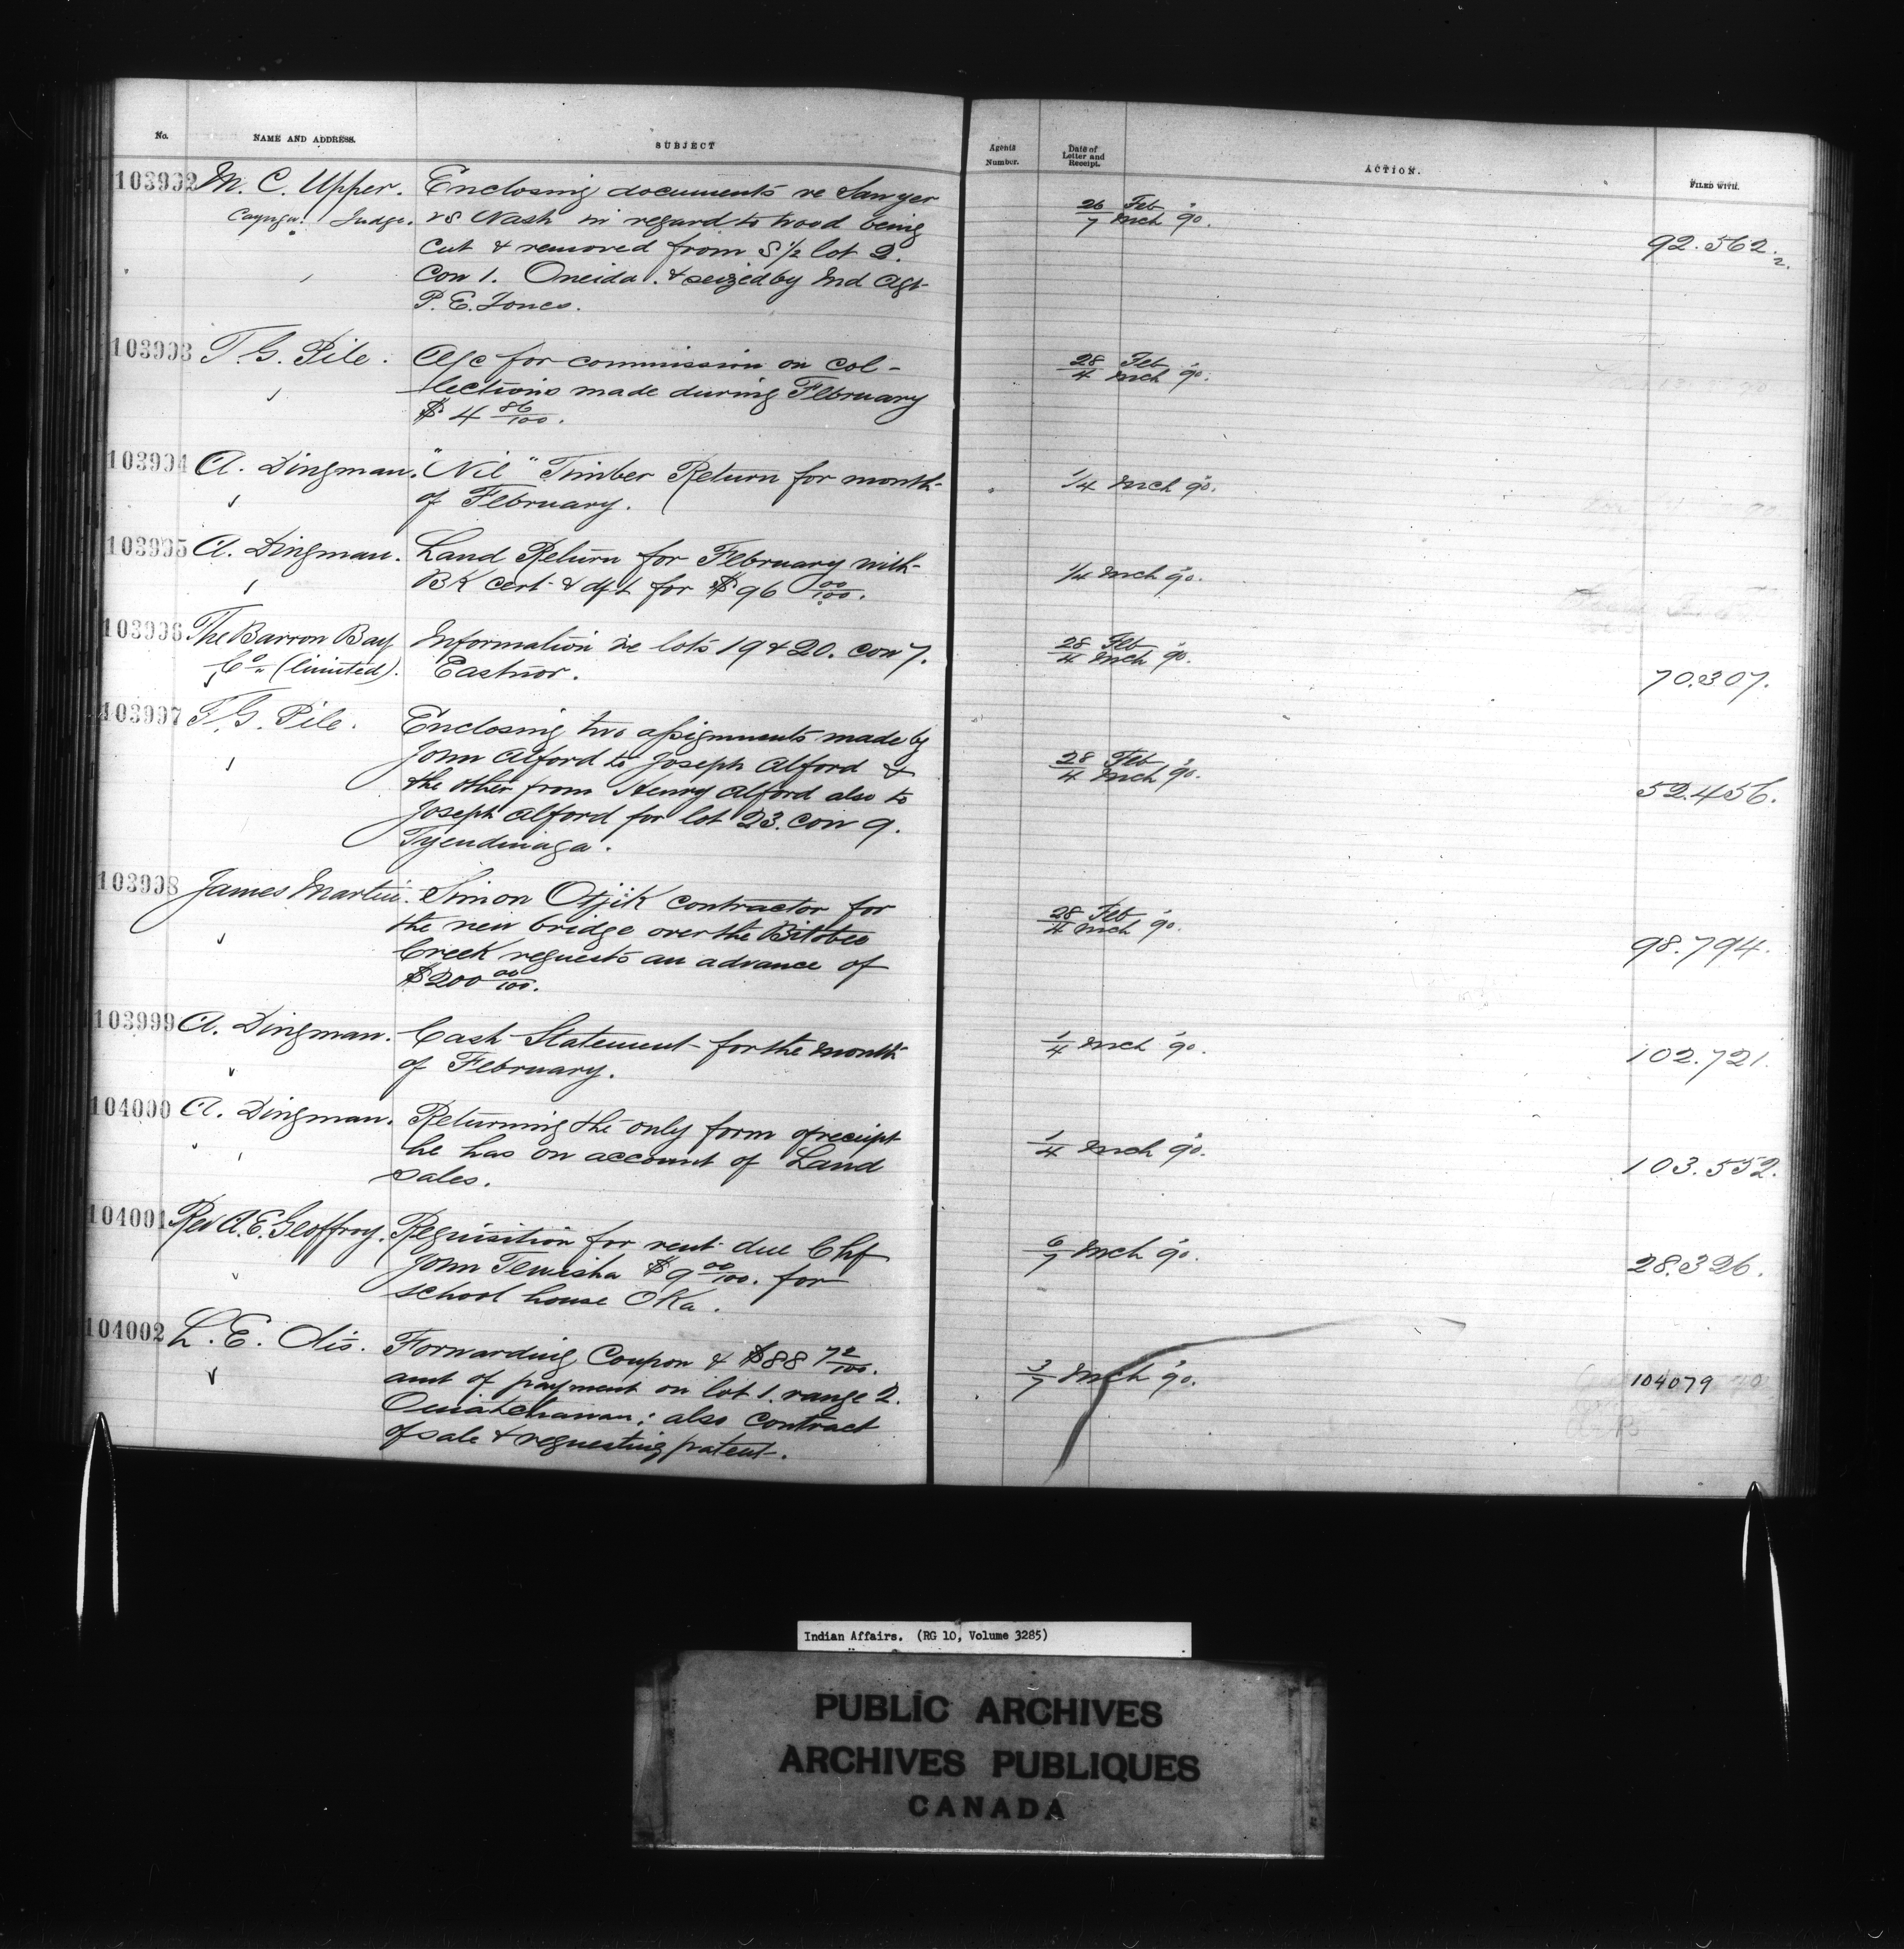 No. NAME AND ADDRESS. SUBJECT Agents Number. Date of Letter and Receipt. ACTION. FILED WITH.
103992 M. C. Upper. Enclosing documents re Sawyer 26/7 Feb/Mch 90. 92.562.2.
Cayuga. Judge. vs Nash in regard to wood being
cut & removed from S 1/2 lot 2.
Con 1. Oneida. & seized by Ind Agt
P. E. Jones.
103993 T. G. Pile. A/c for commission on col- 28/4 Feb/Mch 90.
lections made during February
$4 86/100.
103994 A. Dingman. "Nil" Timber Return for month 1/4 Mch 90.
of February.
103995 A. Dingman. Land Return for February with 1/4 Mch 90.
BK cert & dft for $96 00/100.
103996 The Barron Bay Information re lots 19 & 20. con 7. 28/4 Feb/Mch 90. 70.307.
Co. (limited). Eastnor.
103997 T. G. Pile. Enclosing two assignments made by 28/4 Feb/Mch 90. 52.456.
John Alford to Joseph Alford &
the other from Henry Alford also to
Joseph Alford for lot 23. con 9.
Tyendinaga.
103998 James Martin. Simon Otjik contractor for 28/4 Feb/Mch 90. 98.794.
the new bridge over the Bitobec
Creek requests an advance of
$200 00/100.
103999 A. Dingman. Cash Statement for the month 1/4 Mch 90. 102.721.
of February.
104000 A. Dingman. Returning the only form of receipt 1/4 Mch 90. 103.552.
he has on account of Land
sales.
104001 Rev A. E. Geoffroy. Requisition for rent due Chf 6/7 Mch 90. 28.326.
John Tewisha $9 00/100. for
school house Oka.
104002 L. E. Otis. Forwarding Coupon & $88 72/100. 3/7 Mch 90. 104079
amt of payment on lot 1. range 2.
Ouiatchouan; also contract
of sale & requesting patent.
Indian Affairs. (RG 10, Volume 3285)
PUBLIC ARCHIVES
ARCHIVES PUBLIQUES
CANADA